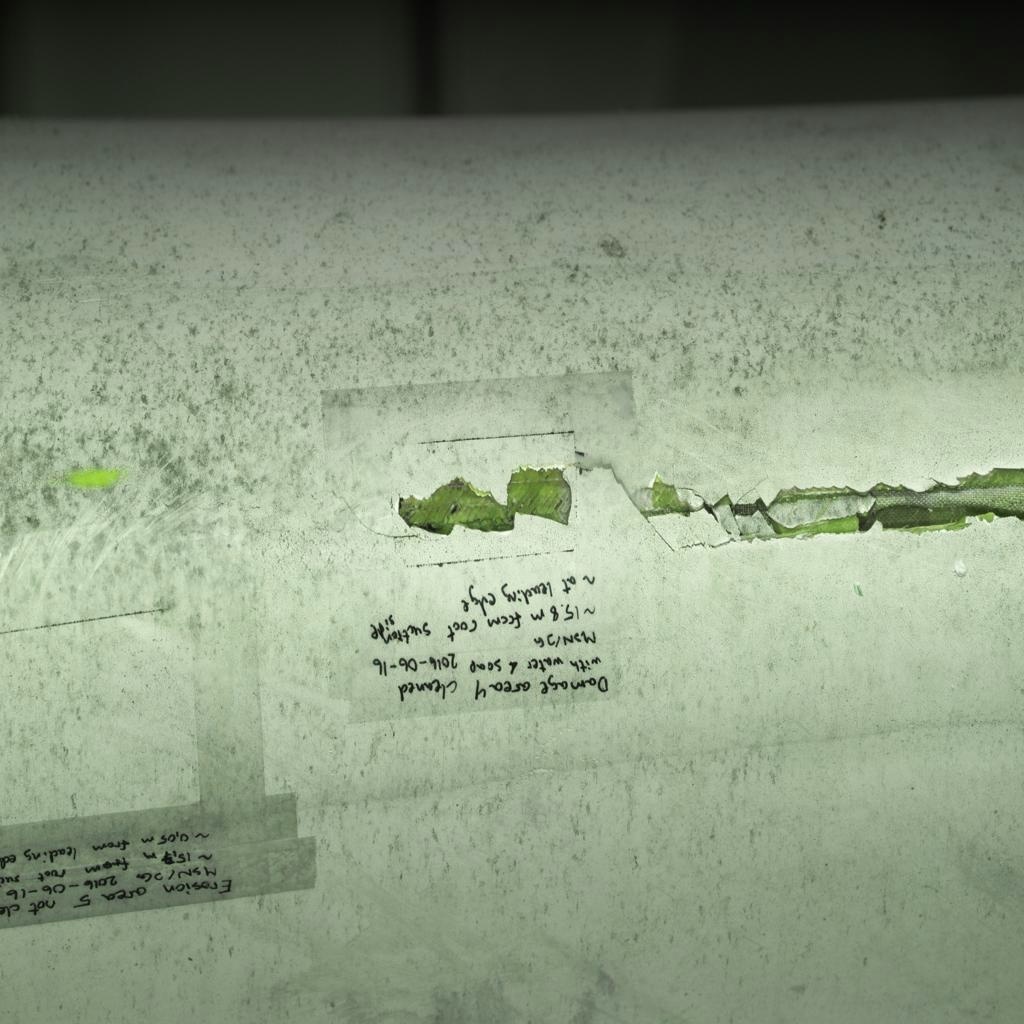 Damage area 4 cleaned
with water & soap 2016-06-16
MSN/JG
~15.8 m from root suction side
~ at leading edge
Erosion area 5 not cle
MSN/JG 2016-06-16
~ 15,7 m from root suc
~ 0,05 m from leading ed